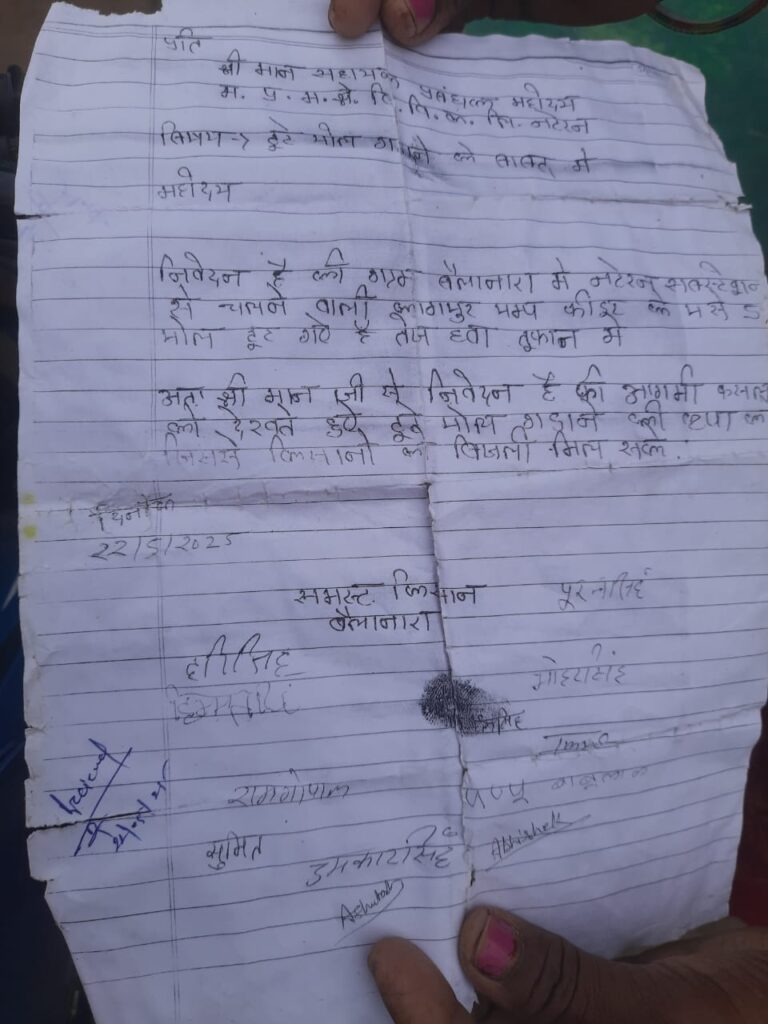 प्रति
श्री मान सहायक प्रबंधक महोदय
म. प्र. म. क्षे. वि. वि. क. लि. नटेरन
विषय → टूटे पोल गड़ाने के बावद मे
महोदय
निवेदन है की ग्राम बैलानारा मे नटेरन सबस्टेशन
से चलने वाली पम्प फीडर के 5
पोल टूट गये है तेज हवा तूफान मे
अतः श्री मान जी से निवेदन है की आगामी फसल
को देखते हुये टूटे पोल गड़ाने की कृपा क
जिससे किसानो को बिजली मिल सके.
दिनांक
22/5/2025
समस्त किसान
बैलानारा
पूरनसिंह
हरिसिंह
मोहरसिंह
रामगोपाल
पप्पू बाबूलाल
सुमित
उमकारसिंह
Abhishek
Ashutosh
Received